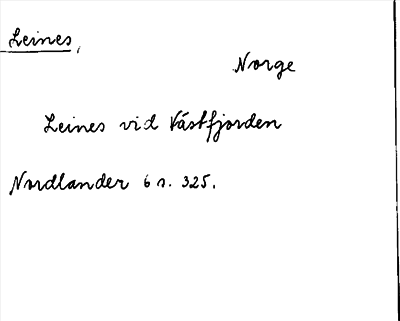 Leines,
Norge
Leines vid Västfjorden
Nordlander 6 s. 325.